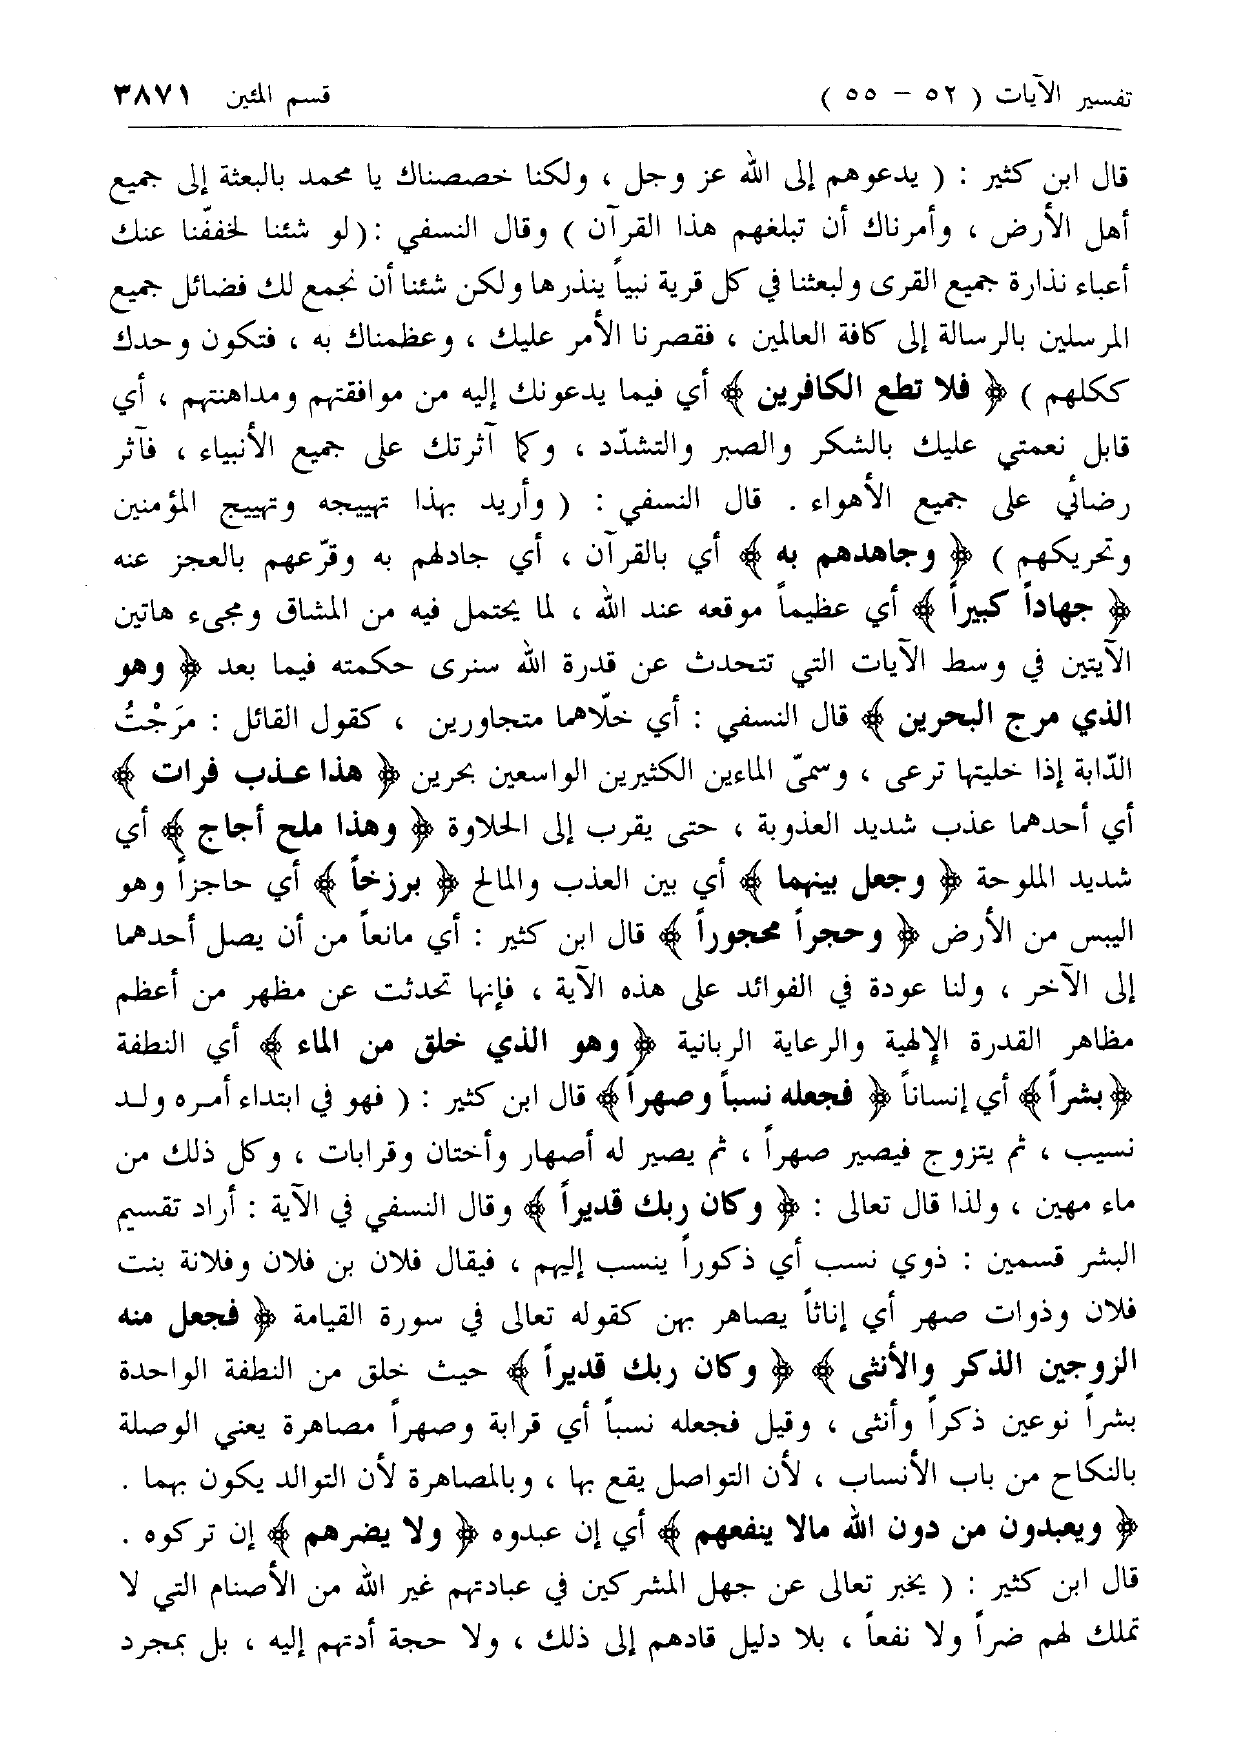 تفسير الآيات ( ٥٢ – ٥٥ ) قسم المئين ٣٨٧١
قال ابن كثير : ( يدعوهم إلى الله عز وجل ، ولكنا خصصناك يا محمد بالبعثة إلى جميع
أهل الأرض ، وأمرناك أن تبلغهم هذا القرآن ) وقال النسفي :( لو شئنا لخففّنا عنك
أعباء نذارة جميع القرى ولبعثنا في كل قرية نبياً ينذرها ولكن شئنا أن نجمع لك فضائل جميع
المرسلين بالرسالة إلى كافة العالمين ، فقصرنا الأمر عليك ، وعظمناك به ، فتكون وحدك
ككلهم ) ﴿ فلا تطع الكافرين ﴾ أي فيما يدعونك إليه من موافقتهم ومداهنتهم ، أي
قابل نعمتي عليك بالشكر والصبر والتشدّد ، وكما آثرتك على جميع الأنبياء ، فآثر
رضائي على جميع الأهواء . قال النسفي : ( وأريد بهذا تهييجه وتهييج المؤمنين
وتحريكهم ) ﴿ وجاهدهم به ﴾ أي بالقرآن ، أي جادلهم به وقرّعهم بالعجز عنه
﴿ جهاداً كبيراً ﴾ أي عظيماً موقعه عند الله ، لما يحتمل فيه من المشاق ومجىء هاتين
الآيتين في وسط الآيات التي تتحدث عن قدرة الله سنرى حكمته فيما بعد ﴿ وهو
الذي مرج البحرين ﴾ قال النسفي : أي خلّاهما متجاورين ، كقول القائل : مَرَجْتُ
الدّابة إذا خليتها ترعى ، وسمىّ الماءين الكثيرين الواسعين بحرين ﴿ هذا عـذب فرات ﴾
أي أحدهما عذب شديد العذوبة ، حتى يقرب إلى الحلاوة ﴿ وهذا ملح أجاج ﴾ أي
شديد الملوحة ﴿ وجعل بينهما ﴾ أي بين العذب والمالح ﴿ برزخاً ﴾ أي حاجزاً وهو
اليبس من الأرض ﴿ وحجراً محجوراً ﴾ قال ابن كثير : أي مانعاً من أن يصل أحدهما
إلى الآخر ، ولنا عودة في الفوائد على هذه الآية ، فإنها تحدثت عن مظهر من أعظم
مظاهر القدرة الإلهية والرعاية الربانية ﴿ وهو الذي خلق من الماء ﴾ أي النطفة
﴿ بشراً ﴾ أي إنساناً ﴿ فجعله نسباً وصهراً ﴾ قال ابن كثير : ( فهو في ابتداء أمـره ولـد
نسيب ، ثم يتزوج فيصير صهراً ، ثم يصير له أصهار وأختان وقرابات ، وكل ذلك من
ماء مهين ، ولذا قال تعالى : ﴿ وكان ربك قديراً ﴾ وقال النسفي في الآية : أراد تقسيم
البشر قسمين : ذوي نسب أي ذكوراً ينسب إليهم ، فيقال فلان بن فلان وفلانة بنت
فلان وذوات صهر أي إناثاً يصاهر بهن كقوله تعالى في سورة القيامة ﴿ فجعل منه
الزوجين الذكر والأنثى ﴾ ﴿ وكان ربك قديراً ﴾ حيث خلق من النطفة الواحدة
بشراً نوعين ذكراً وأنثى ، وقيل فجعله نسباً أي قرابة وصهراً مصاهرة يعني الوصلة
بالنكاح من باب الأنساب ، لأن التواصل يقع بها ، وبالمصاهرة لأن التوالد يكون بهما .
﴿ ويعبدون من دون الله مالا ينفعهم ﴾ أي إن عبدوه ﴿ ولا يضرهم ﴾ إن تركوه .
قال ابن كثير : ( يخبر تعالى عن جهل المشركين في عبادتهم غير الله من الأصنام التي لا
تملك لهم ضراً ولا نفعاً ، بلا دليل قادهم إلى ذلك ، ولا حجة أدتهم إليه ، بل بمجرد